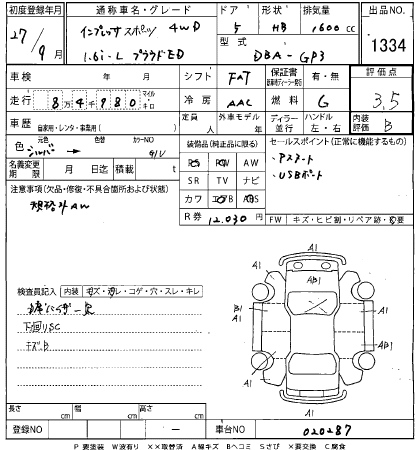 初度登録年 通称車名・グレード ドア 形状 排気量 出品NO
27/9月 インプレッサ スポーツ 4WD 5 HB 1600 cc 1334
1.6i-L プラウドED 型式 DBA-GP3
車検 年 月 シフト FAT 保証書 有・無 評価点
走行 8万4千980 マイル キロ 冷房 AAC 燃料 G 3.5
車歴 自家用・レンタ・事業用( ) 定員 人 外車モデル 年 ディーラー 並行 ハンドル 左・右 内装評価 B
色 元色 シルバー 色替 カラーNO G1U 装備品(純正品に限る) セールスポイント(正常に機能するもの)
名義変更期限 月 日 積載 t PS PW AW ・アスマート
SR TV ナビ ・USBポート
注意事項(欠品・修復・不具合箇所および状態) カワ エアB ABS
規格外AW R券 12,030円 FW キズ・ヒビ割・リペア跡・要
A1
A1 AB1 A1
検査員記入 内装 キズ・汚レ・コゲ・穴・スレ・キレ
B1 A1
A1
下廻りSC
キズB A1 A1
長さ cm 幅 cm 高さ cm A1
登録NO — 車台NO 020287
P要塗装 W波有り ××取替済 A線キズ Bヘコミ Sさび ×要交換 C腐食